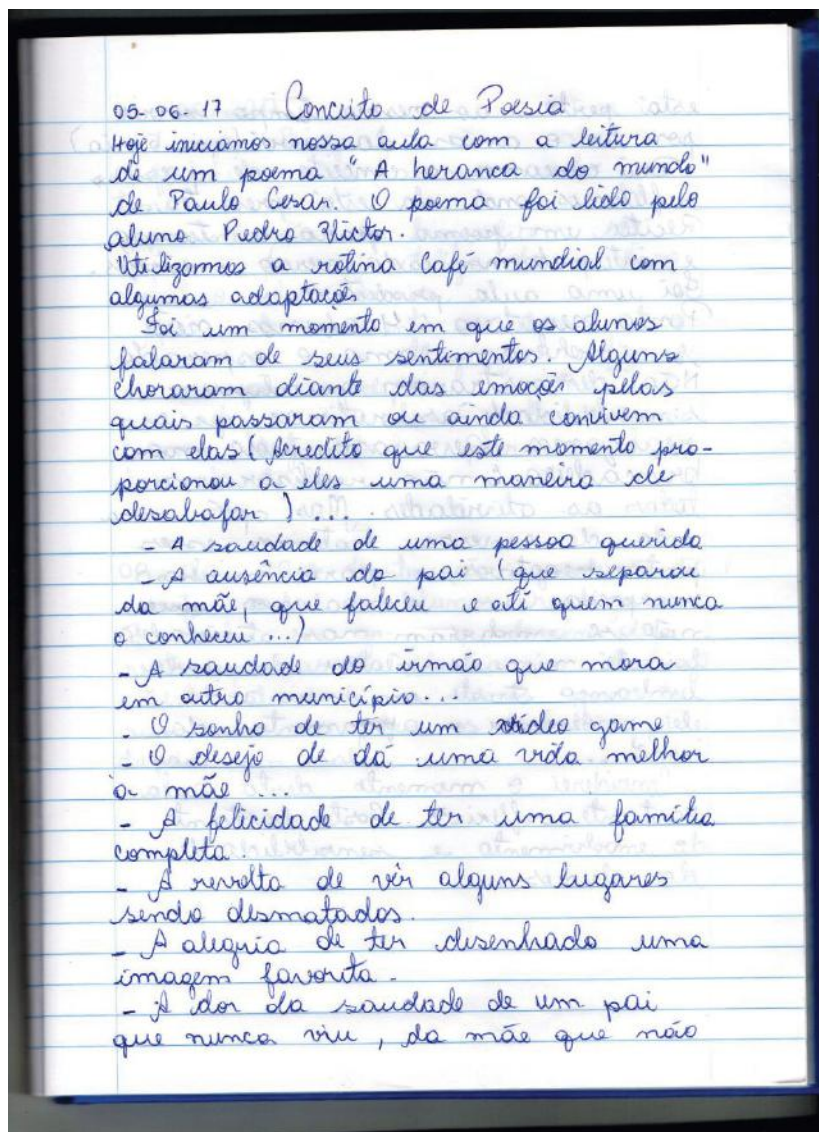 05-06-17 Conceito de Poesia
Hoje iniciamos nossa aula com a leitura
de um poema "A herança do mundo"
de Paulo Cesar. O poema foi lido pelo
aluno Pedro Victor.
Utilizamos a rotina Café mundial com
algumas adaptações
Foi um momento em que os alunos
falaram de seus sentimentos. Alguns
choraram diante das emoções pelas
quais passaram ou ainda convivem
com elas (Acredito que este momento pro-
porcionou a eles uma maneira de
desabafar) ...
- A saudade de uma pessoa querida
- A ausência do pai (que separou
da mãe, que faleceu e até quem nunca
o conheceu ...)
- A saudade do irmão que mora
em outro município...
- O sonho de ter um vídeo game
- O desejo de dá uma vida melhor
a mãe ...
- A felicidade de ter uma família
completa.
- A revolta de vir alguns lugares
sendo desmatados.
- A alegria de ter desenhado uma
imagem favorita.
- A dor da saudade de um pai
que nunca viu, da mãe que não